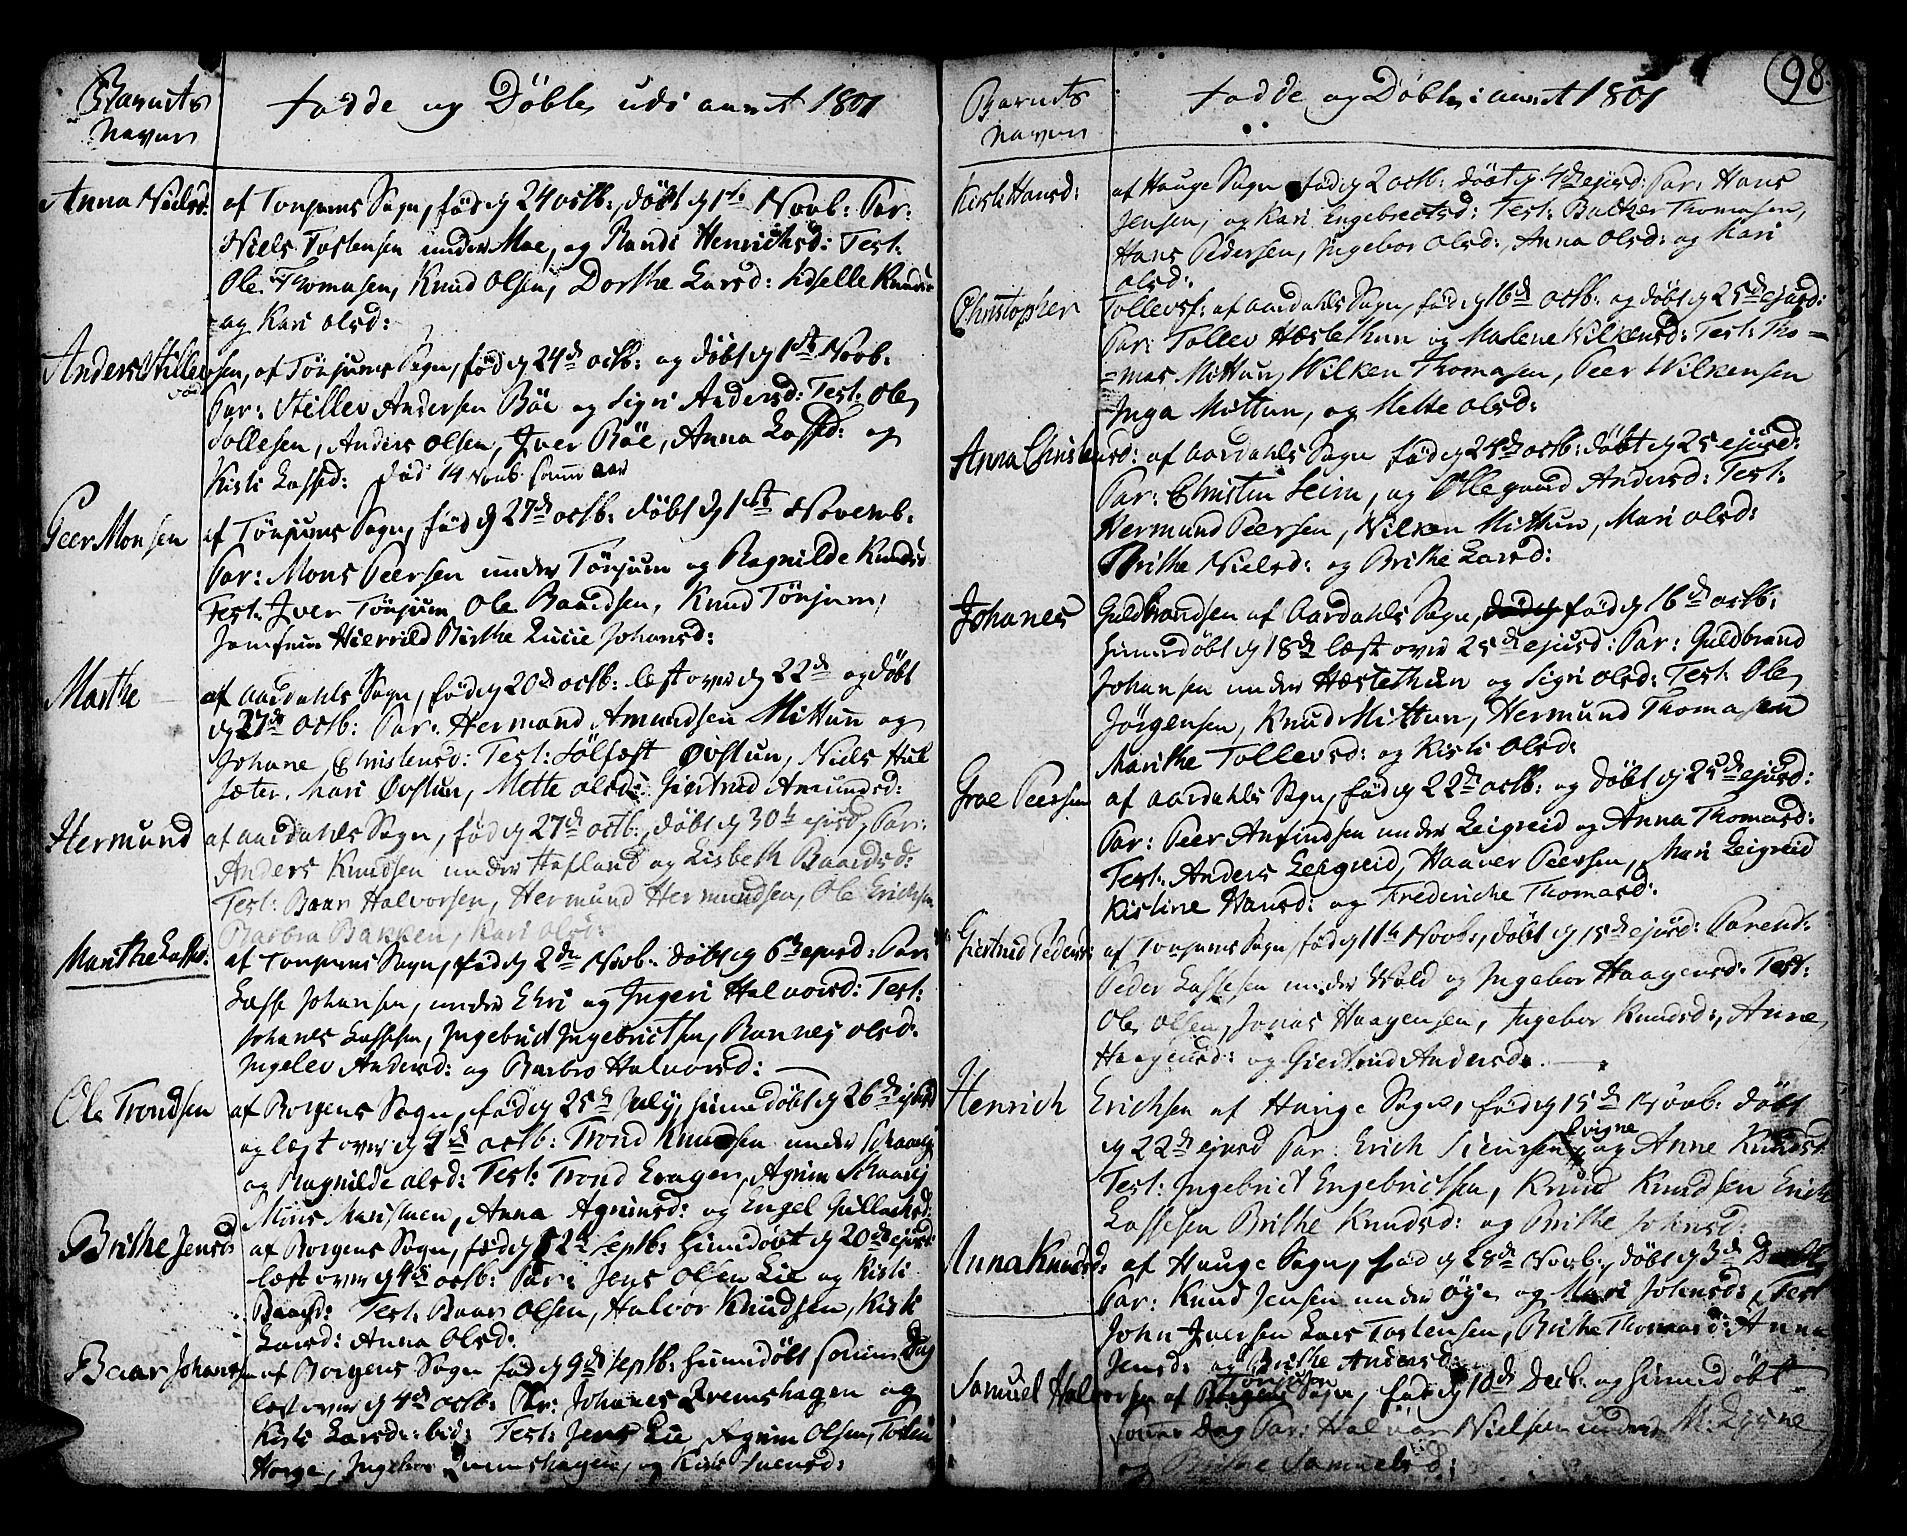 Barnets
Navn
Fødde og Døbte udi aaret 1801
Anna Nielsd: af Tonjums Sogn, fød d 24 octb:, døbt d 1ste Novb: Par:
Niels Tostensen under Moe, og Randi Henrichsd: Test:
Ole Thomasen, Knud Olsen, Dorthe Larsd: Sidselle Knudsd
og Kari Olsd:
Anders Stillevsen, af Tønjums Sogn, fød d 24de octb: og døbt d 1ste Novb.
Par: Stillev Andersen Bøe og Sigri Andersd: Test: Ole
Tollesen, Anders Olsen, Iver Bøe, Anna Lassed: og
Kisti Lassed: Død 14 Novb samme aar
Peer Monsen af Tønjums Sogn, fød d 27de octb: døbt d 1ste Novemb.
Par: Mons Peersen under Tønjum og Ragnilde Knudsd
Test: Iver Tønjum Ole Baardsen, Knud Tønjum,
Jomfrue Hierrild Birthe Lucie Johansd:
Marthe af Aardahls Sogn, fød d 20de octb: læst over d 22de og døbt
d 27de octb: Par: Hermand Amundsen Mittun og
Johane Christensd: Test: Sølfæst Øvstun, Niels Hul
sæter, Mari Øvstun, Mette Olsd: Giertrud Amundsd:
Hermund af Aardahls Sogn, fød d 27de octb:, døbt d 30te ejusd, Par:
Anders Knudsen under Hæfland og Lisbeth Baardsd:
Test: Baar Halvorsen, Hermund Hermundsen, Ole Erichsen
Barbra Bakken, Kari Olsd:
Marithe Lassed: af Tonjums Sogn, fød d 2den Novb. døbt d 6te ejusd: Par:
Lasse Johansen, under Ehri og Ingeri Halvorsd: Test:
Johanes Lassesen, Ingebrict Ingebrictsen, Rannej Olsd.
Ingelev Andersd: og Barbro Halvorsd:
Ole Trondsen af Borgens Sogn, fød d 25de July, hiemedøbt d 26de ejusd
og læst over d 4de octb: Trond Knudsen under
og Ragnilde Olsd: Test: Trond Erager, Agrim
Anna Agrimsd: og Engel Gullachsd:
Brithe Jensd af Borgens Sogn, fød d 12te Septb: hiemedøbt d 20de ejusd:
læst over d 4de octb: Par: Jens Olsen Lie og Kisti
Baarsd: Test: Baar Olsen, Halvor Knudsen, Kisti
Larsd: Anna Olsd:
Baar Johansen af Borgens Sogn fød d 9de Septb: hiemedøbt samme Dag
læst over d 4de octb: Par: Johanes Bremshagen og
Kisti Larsd: ibid: Test: Jens Lie Agrim Olsen, Tosten
Horge, Ingebor og Kisti Svensd:
98
Barnets
Navn
Fødde og Døbte i aaret 1801
Kirsti Hansd: af Hauge Sogn fød d 2 octb: døbt d 4de ejusd: Par: Hans
Jensen, og Kari Engebrectsd: Test: Baltzer Thomasen,
Hans Pedersen, Ingebor Olsd:, Anna Olsd: og Kari
Olsd:
Christopher Tollevs: af Aardahls Sogn, fød d 16de octb: og døbt d 25de ejusd:
Par: Tollev Hæstethun og Malene Wilkensd: Test: Tho-
=mas Mittun, Wilken Thomasen, Peer Wilkensen
Inga Mittun, og Mette Olsd:
Anna Christensd: af Aardahls Sogn fød d 24de octb: døbt d 25 ejusd:
Par: Christen Seim, og Øllegaard Andersd: Test:
Hermund Peersen, Wilken Mittun, Mari Olsd:
Brithe Nielsd: og Brithe Larsd:
Johanes Guldbrandsen af Aardahls Sogn, fød d 16de octb:
hiemedøbt d 18de læst over 25de ejusd: Par: Guldbrand
Johansen under Hæstethun og Sigri Olsd: Test: Ole
Jørgensen, Knud Mittun, Hermund Thomasen
Marithe Tollevsd: og Kisti Olsd:
Groe Peersen af Aardahls Sogn, fød d 22de octb: og døbt d 25de ejusd:
Par: Peer Anfindsen under Leigreid og Anna Thomasd:
Test: Anders Leigreid, Haaver Peersen, Mari Leigreid
Kistine Hansd: og Frederiche Thomasd:
Giertrud Pedersd: af Tonjums Sogn, fød d 11te Novb:, døbt d 15de ejusd: Parent:
Peder Lassesen under Wold og Ingebor Haagensd: Test:
Ole Olsen, Jonas Haagensen, Ingebor Knudsd:, Anne
Haagensd: og Giertrud Andersd.
Henrich Erichsen af Hauge Sogn, fød d 15de Novb: døbt
d 22de ejusd Par: Erich Siursen Lvigne og Anne Knudsd
Test: Ingebrict Engebrictsen, Knud Knudsen Erich
Lassesen Brithe Knudsd: og Brithe Johnsd:
Anna Knudsd: af Hauge Sogn, fød d 28de Novb:, døbt d 3de Decb
Par: Knud Jensen under Øye og Mari Johnsd:, Test
John Iversen Lars Tostensen, Brithe Thomasd: Anna
Jensd: og Brithe Andersd:
Samuel Halvorsen af Tønjum Sogn, fød d 10de Decb: og hiemedøbt
samme Dag Par: Halvor Nielsen under
og Brithe Samuelsd: